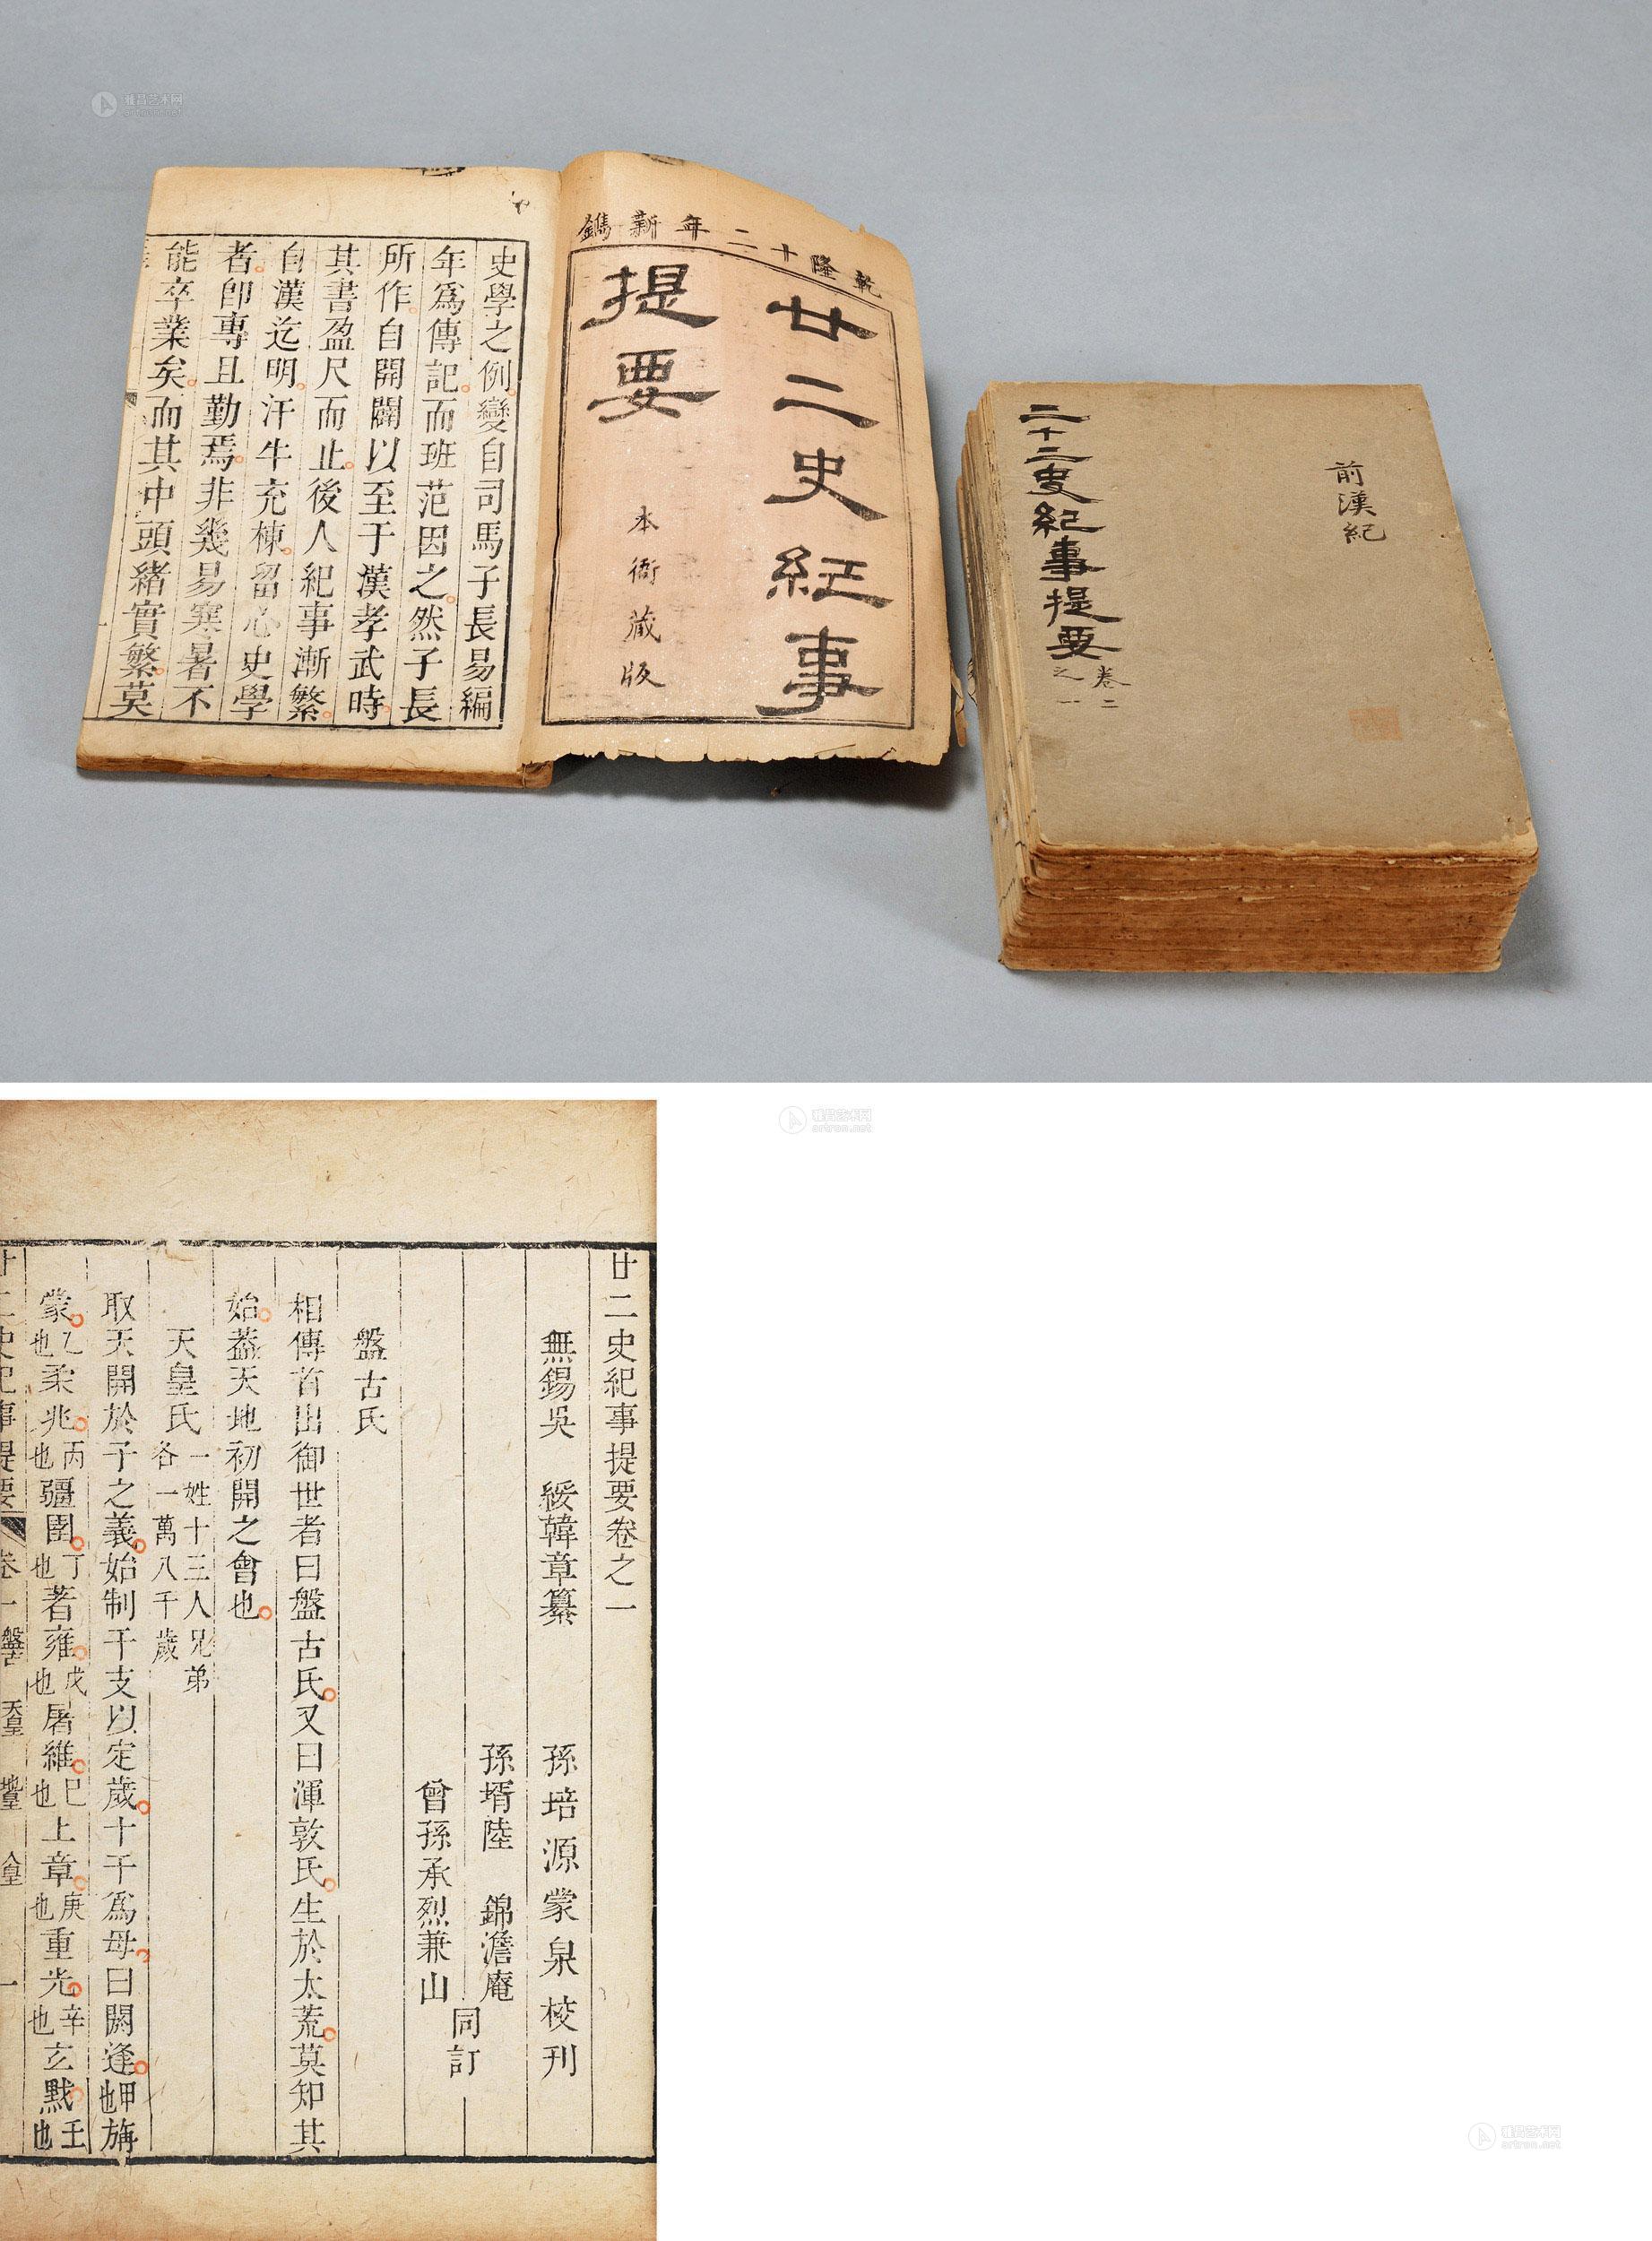 雅昌艺术网
artron.net
乾隆十二年新鐫
廿二史紀事
提要
本衙藏版
史學之例變自司馬子長易編
年爲傳記而班范因之然子長
所作自開闢以至于漢孝武時
其書盈尺而止後人紀事漸繁
自漢迄明汗牛充棟留心史學
者卽專且勤焉非幾易寒暑不
能卒業矣而其中頭緒實繁莫
前漢紀
二十二史紀事提要
卷二
之一
雅昌艺术网
artron.net
廿二史紀事提要卷之一
無錫吳 綏韓章纂 孫培源蒙泉校刊
孫壻陸 錦澹庵
曾孫承烈兼山
同訂
盤古氏
相傳首出御世者曰盤古氏又曰渾敦氏生於太荒莫知其
始葢天地初開之會也
天皇氏一姓十三人兄弟各一萬八千歲
取天開於子之義始制干支以定歲十干爲母曰閼逢甲也旃
蒙乙也柔兆丙也彊圉丁也著雍戊也屠維巳也上章庚也重光辛也玄黓壬也
廿二史紀事提要 卷一 盤古 天皇 地皇 人皇 一
雅昌艺术网
artron.net